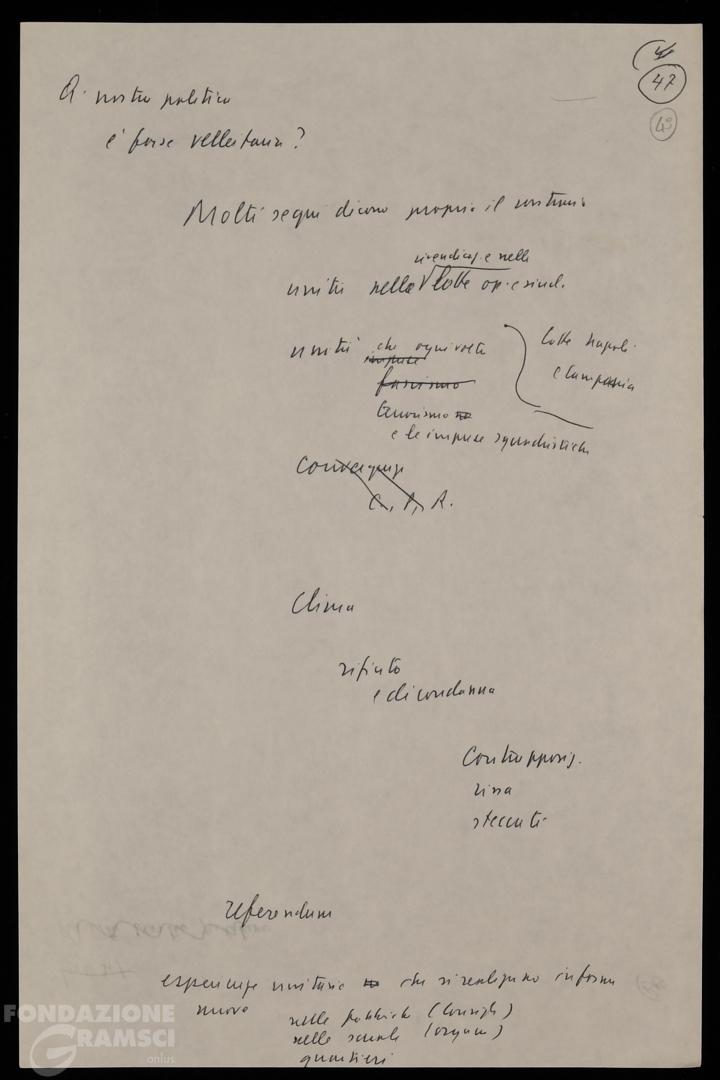 47
4º
La nostra politica
è forse velleitaria?
Molti segni dicono proprio il contrario
rivendicaz. e nelle
unità nelle lotte op. e sind.
unità che ogni volta
imprese
fascismo
terrorismo
e le imprese squadristiche
lotte Napoli
e Campania
Convergenze
C. P. R.
Clima
rifiuto
e di condanna
Contrapposiz.
rissa
steccati
Referendum
esperienze unitarie che si realizzano in forme
nuove
nelle fabbriche (Consigli)
nelle scuole (organi)
quartieri
FONDAZIONE
GRAMSCI
onlus